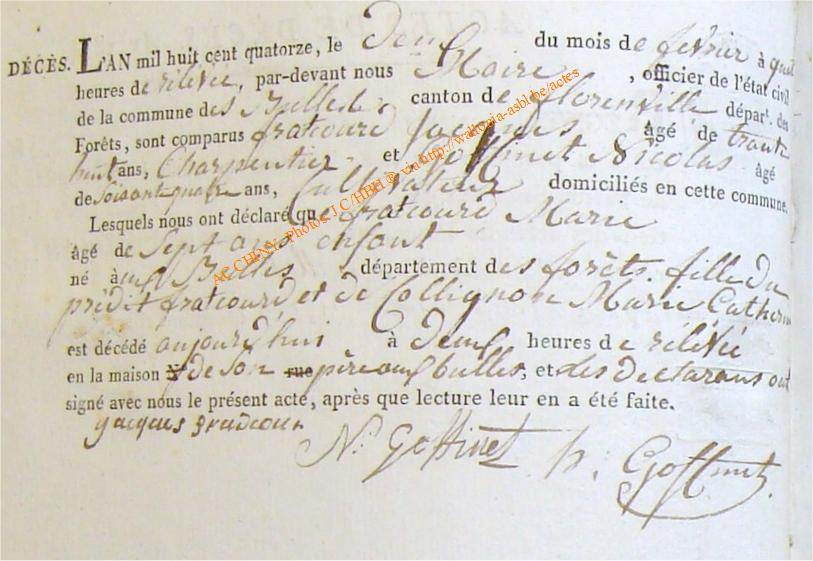 DÉCÈS. L'AN mil huit cent quatorze, le deux du mois de février à quatre
heures de rélévée, par-devant nous Maire, officier de l'état civil
de la commune des Bulles, canton de florenville départ. des
Forêts, sont comparus fratcourd Jacques âgé de trante
huit ans, Charpentier et Goffinet Nicolas âgé
de Soisantquatre ans, Cultivateur domiciliés en cette commune.
Lesquels nous ont déclaré que fratcourd Marie
âgé de Sept ans enfant
né à aux Bulles, département des forêts, fille du
prédit fratcourd et de Collignon Marie Catherine
est décédé aujourd'hui à deux heures de rélévée
en la maison N° de Son rue père aux bulles, et les declarans ont
signé avec nous le présent acte, après que lecture leur en a été faite.
Jacques fradcour
N. Goffinet h. Goffinet
AC CHINY- Photos J C/HBH @ via http://wallonia-asbl.be/actes